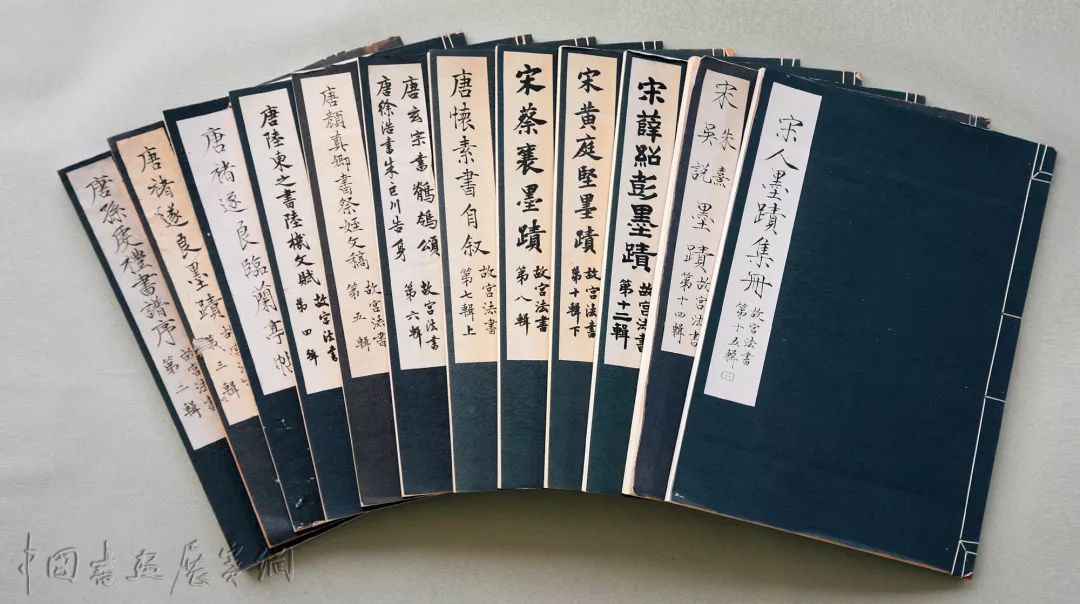 唐孫虔禮書譜序
故宮法書
第二輯
唐褚遂良墨蹟
故宮法書
第三輯
唐褚遂良臨蘭亭帖
唐陸柬之書陸機文賦
故宮法書
第四輯
唐顏真卿書祭姪文稿
故宮法書
第五輯
唐玄宗書鶺鴒頌
唐徐浩書朱巨川告身
故宮法書
第六輯
唐懷素書自叙
故宮法書
第七輯上
宋蔡襄墨蹟
故宮法書
第八輯
宋黃庭堅墨蹟
故宮法書
第十輯下
宋薛紹彭墨蹟
故宮法書
第十二輯
宋朱熹吳說墨蹟
故宮法書
第十四輯
宋人墨蹟集冊
故宮法書
第十五輯(三)
中國書畫展賽網